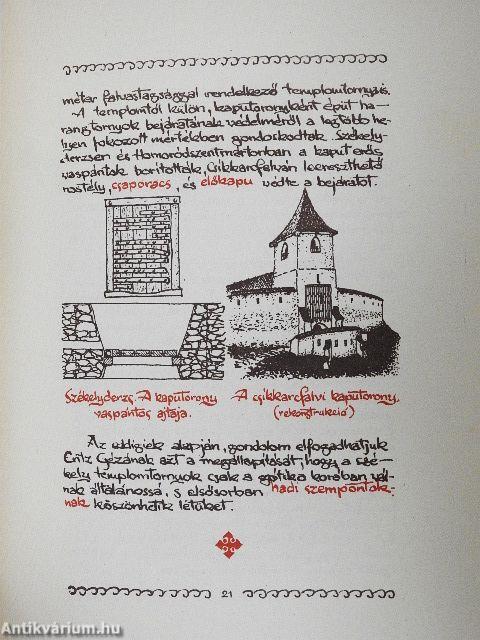 méter falvastagsággal rendelkező templomtornyais.
A templomtól külön, kaputoronyként épült ha-
rangtornyok bejáratának védelméről a legtöbb he-
lyen fokozott mértékben gondoskodtak. Székely-
derzsen és Homoródszentmártonban a kaput erős
vaspántok borították, Csíkkarcfalván leereszthető
rostély, csaporács, és előkapu védte a bejáratot.
Székelyderzs. A kaputorony
vaspántos ajtaja.
A csíkkarcfalvi kaputorony.
(rekonstrukció)
Az eddigiek alapján, gondolom elfogadhatjuk
Entz Gézának azt a megállapítását, hogy a szé-
kely templomtornyok csak a gótika korában vál-
nak általánossá, s elsősorban hadi szempontok-
nak köszönhetik létüket.
21
Antikvárium.hu